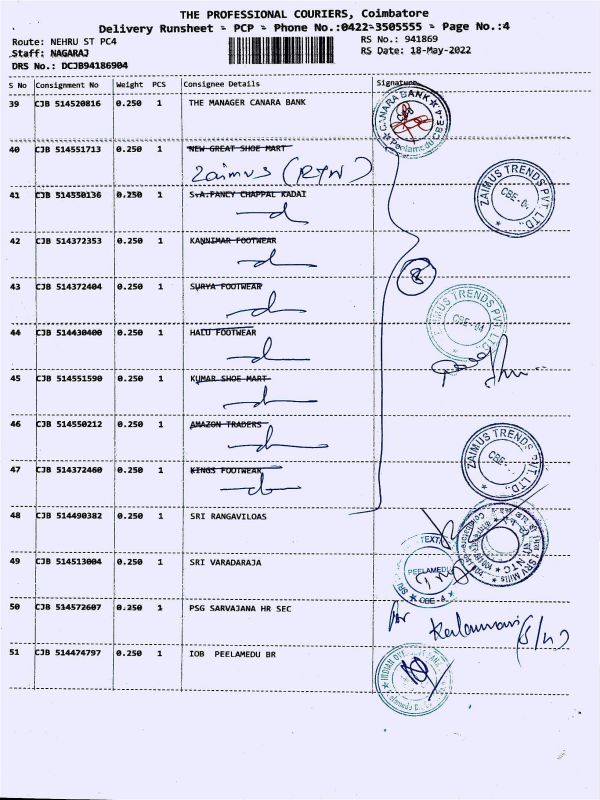 THE PROFESSIONAL COURIERS, Coimbatore
Delivery Runsheet - PCP - Phone No.:0422-3505555 - Page No.:4
Route: NEHRU ST PC4 RS No.: 941869
Staff: NAGARAJ RS Date: 18-May-2022
DRS No.: DCJB94186904
S No Consignment No Weight PCS Consignee Details Signature
39 CJB 514520816 0.250 1 THE MANAGER CANARA BANK
CANARA BANK
Peelamedu CBE-4
40 CJB 514551713 0.250 1 NEW GREAT SHOE MART
Zaimus (RTW)
ZAIMUS TRENDS PVT. LTD.,
CBE-04
41 CJB 514550136 0.250 1 S.A.FANCY CHAPPAL KADAI
42 CJB 514372353 0.250 1 KANNIMAR FOOTWEAR
8
43 CJB 514372404 0.250 1 SURYA FOOTWEAR
ZAIMUS TRENDS PVT. LTD.,
CBE-04
44 CJB 514430400 0.250 1 HALU FOOTWEAR
45 CJB 514551590 0.250 1 KUMAR SHOE MART
46 CJB 514550212 0.250 1 AMAZON TRADERS
ZAIMUS TRENDS PVT. LTD.,
CBE-
47 CJB 514372460 0.250 1 KINGS FOOTWEAR
48 CJB 514490382 0.250 1 SRI RANGAVILOAS
49 CJB 514513004 0.250 1 SRI VARADARAJA
PEELAMEDU
50 CJB 514572607 0.250 1 PSG SARVAJANA HR SEC
51 CJB 514474797 0.250 1 IOB PEELAMEDU BR